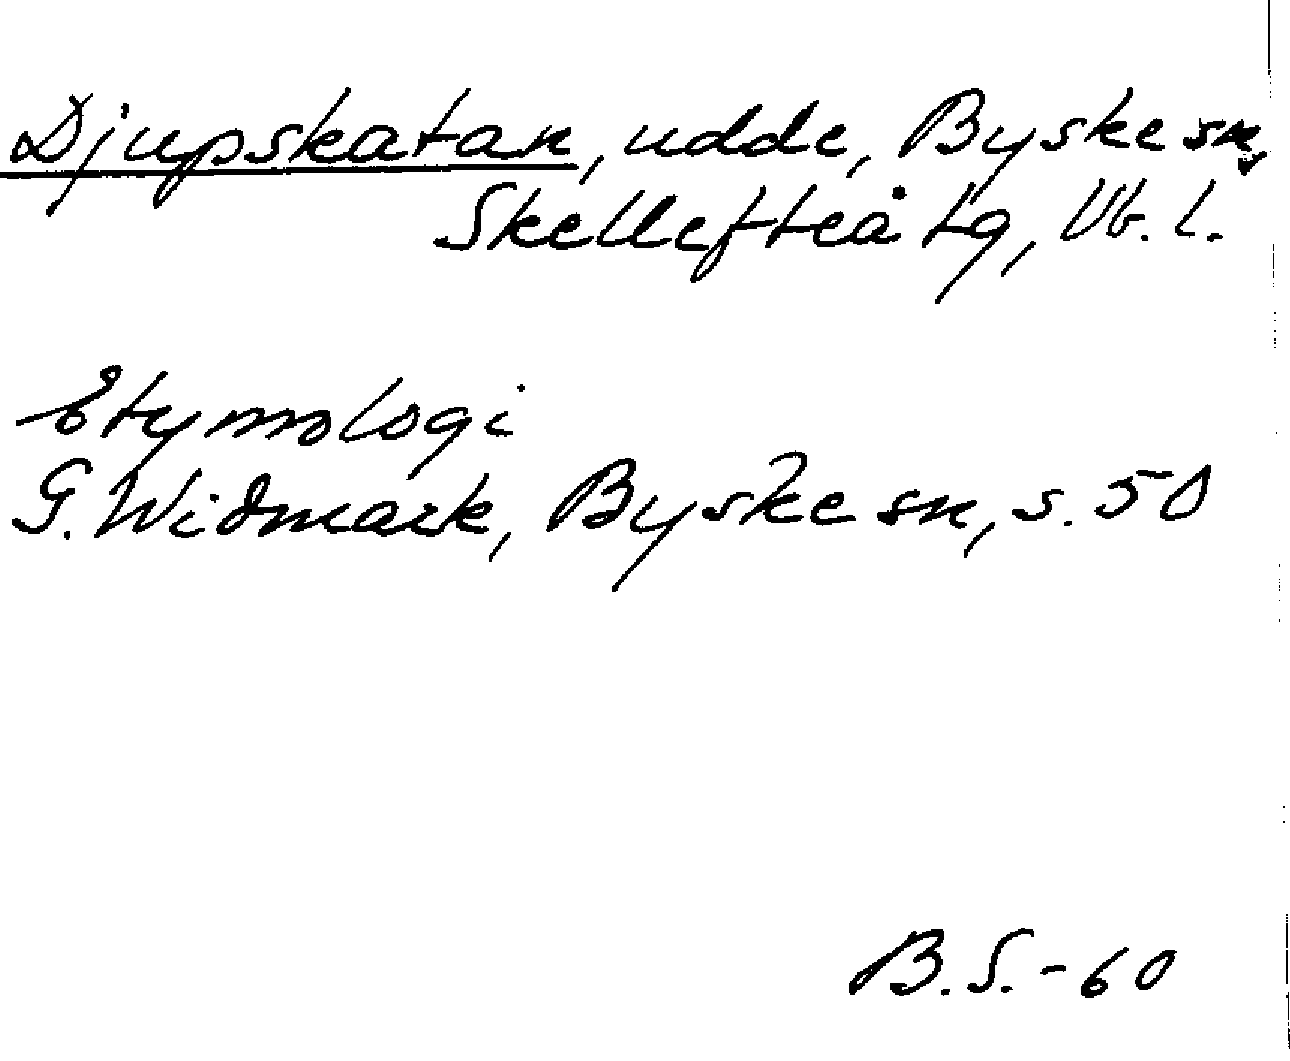 Djupskatan, udde, Byske sn,
Skellefteå tg, Vb. l.
Etymologi
G. Widmark, Byske sn, s. 50
B.S.-60